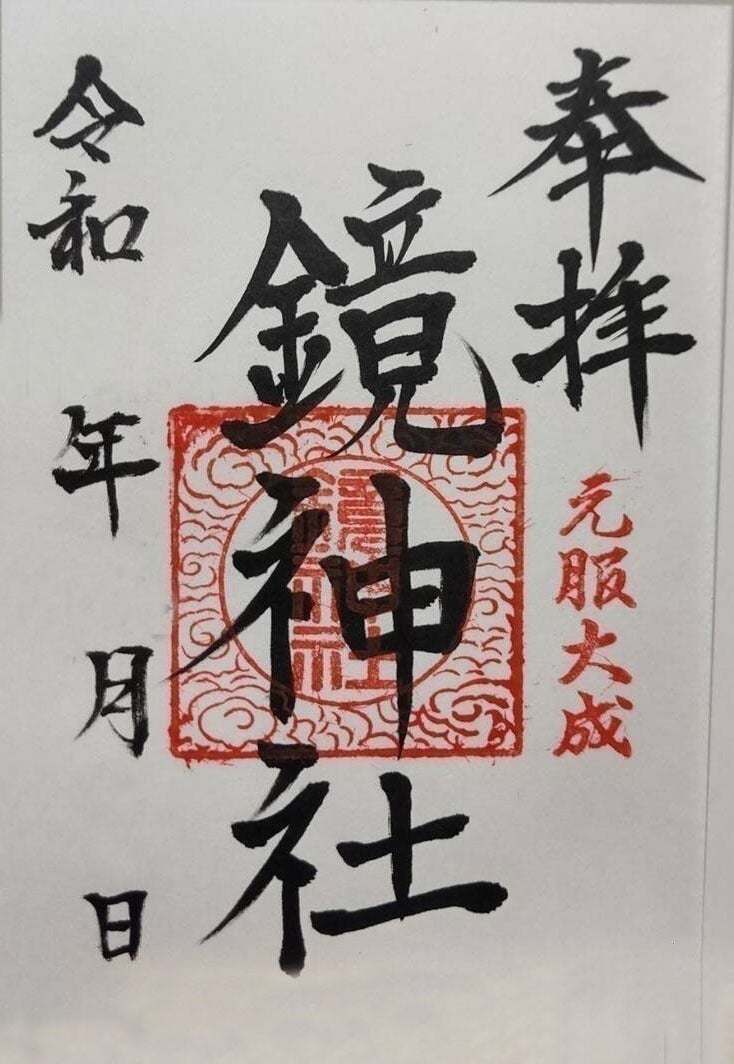 奉拝
元服大成
鏡神社
鏡神社
令和 年 月 日